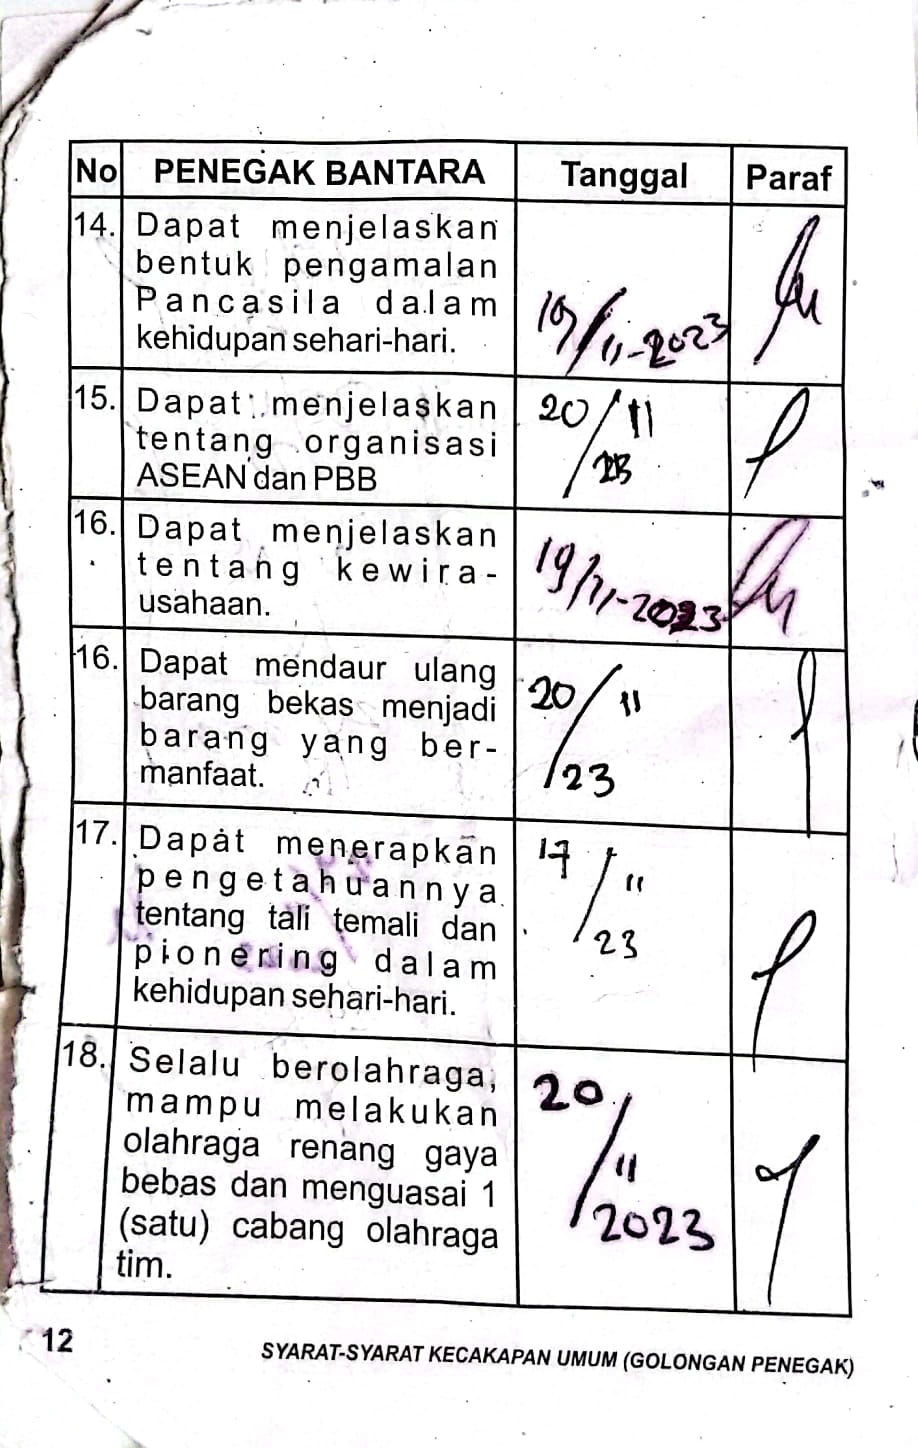 No PENEGAK BANTARA Tanggal Paraf
14. Dapat menjelaskan
bentuk pengamalan
Pancasila dalam
kehidupan sehari-hari.
19/11-2023
15. Dapat menjelaskan
tentang organisasi
ASEAN dan PBB
20/11
23
16. Dapat menjelaskan
tentang kewira-
usahaan.
19/11-2023
16. Dapat mendaur ulang
barang bekas menjadi
barang yang ber-
manfaat.
20/11
23
17. Dapat menerapkan
pengetahuannya
tentang tali temali dan
pionering dalam
kehidupan sehari-hari.
17/11
23
18. Selalu berolahraga,
mampu melakukan
olahraga renang gaya
bebas dan menguasai 1
(satu) cabang olahraga
tim.
20/11
2023
12
SYARAT-SYARAT KECAKAPAN UMUM (GOLONGAN PENEGAK)